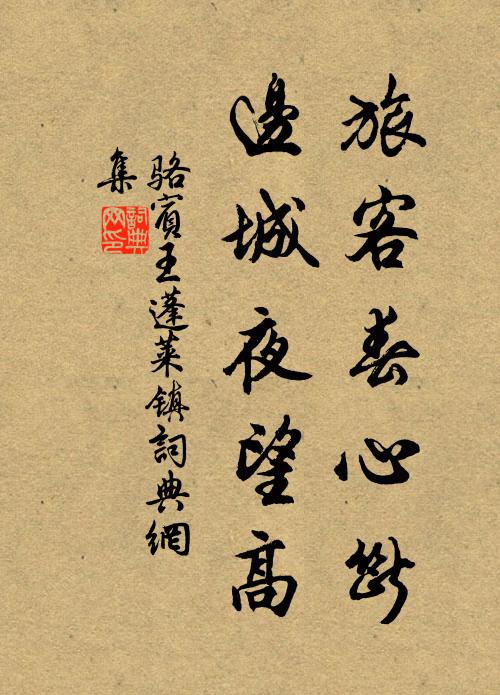 旅客春心斷
邊城夜望高
駱賓王蓬萊鎮詞典網
集
詞典網印